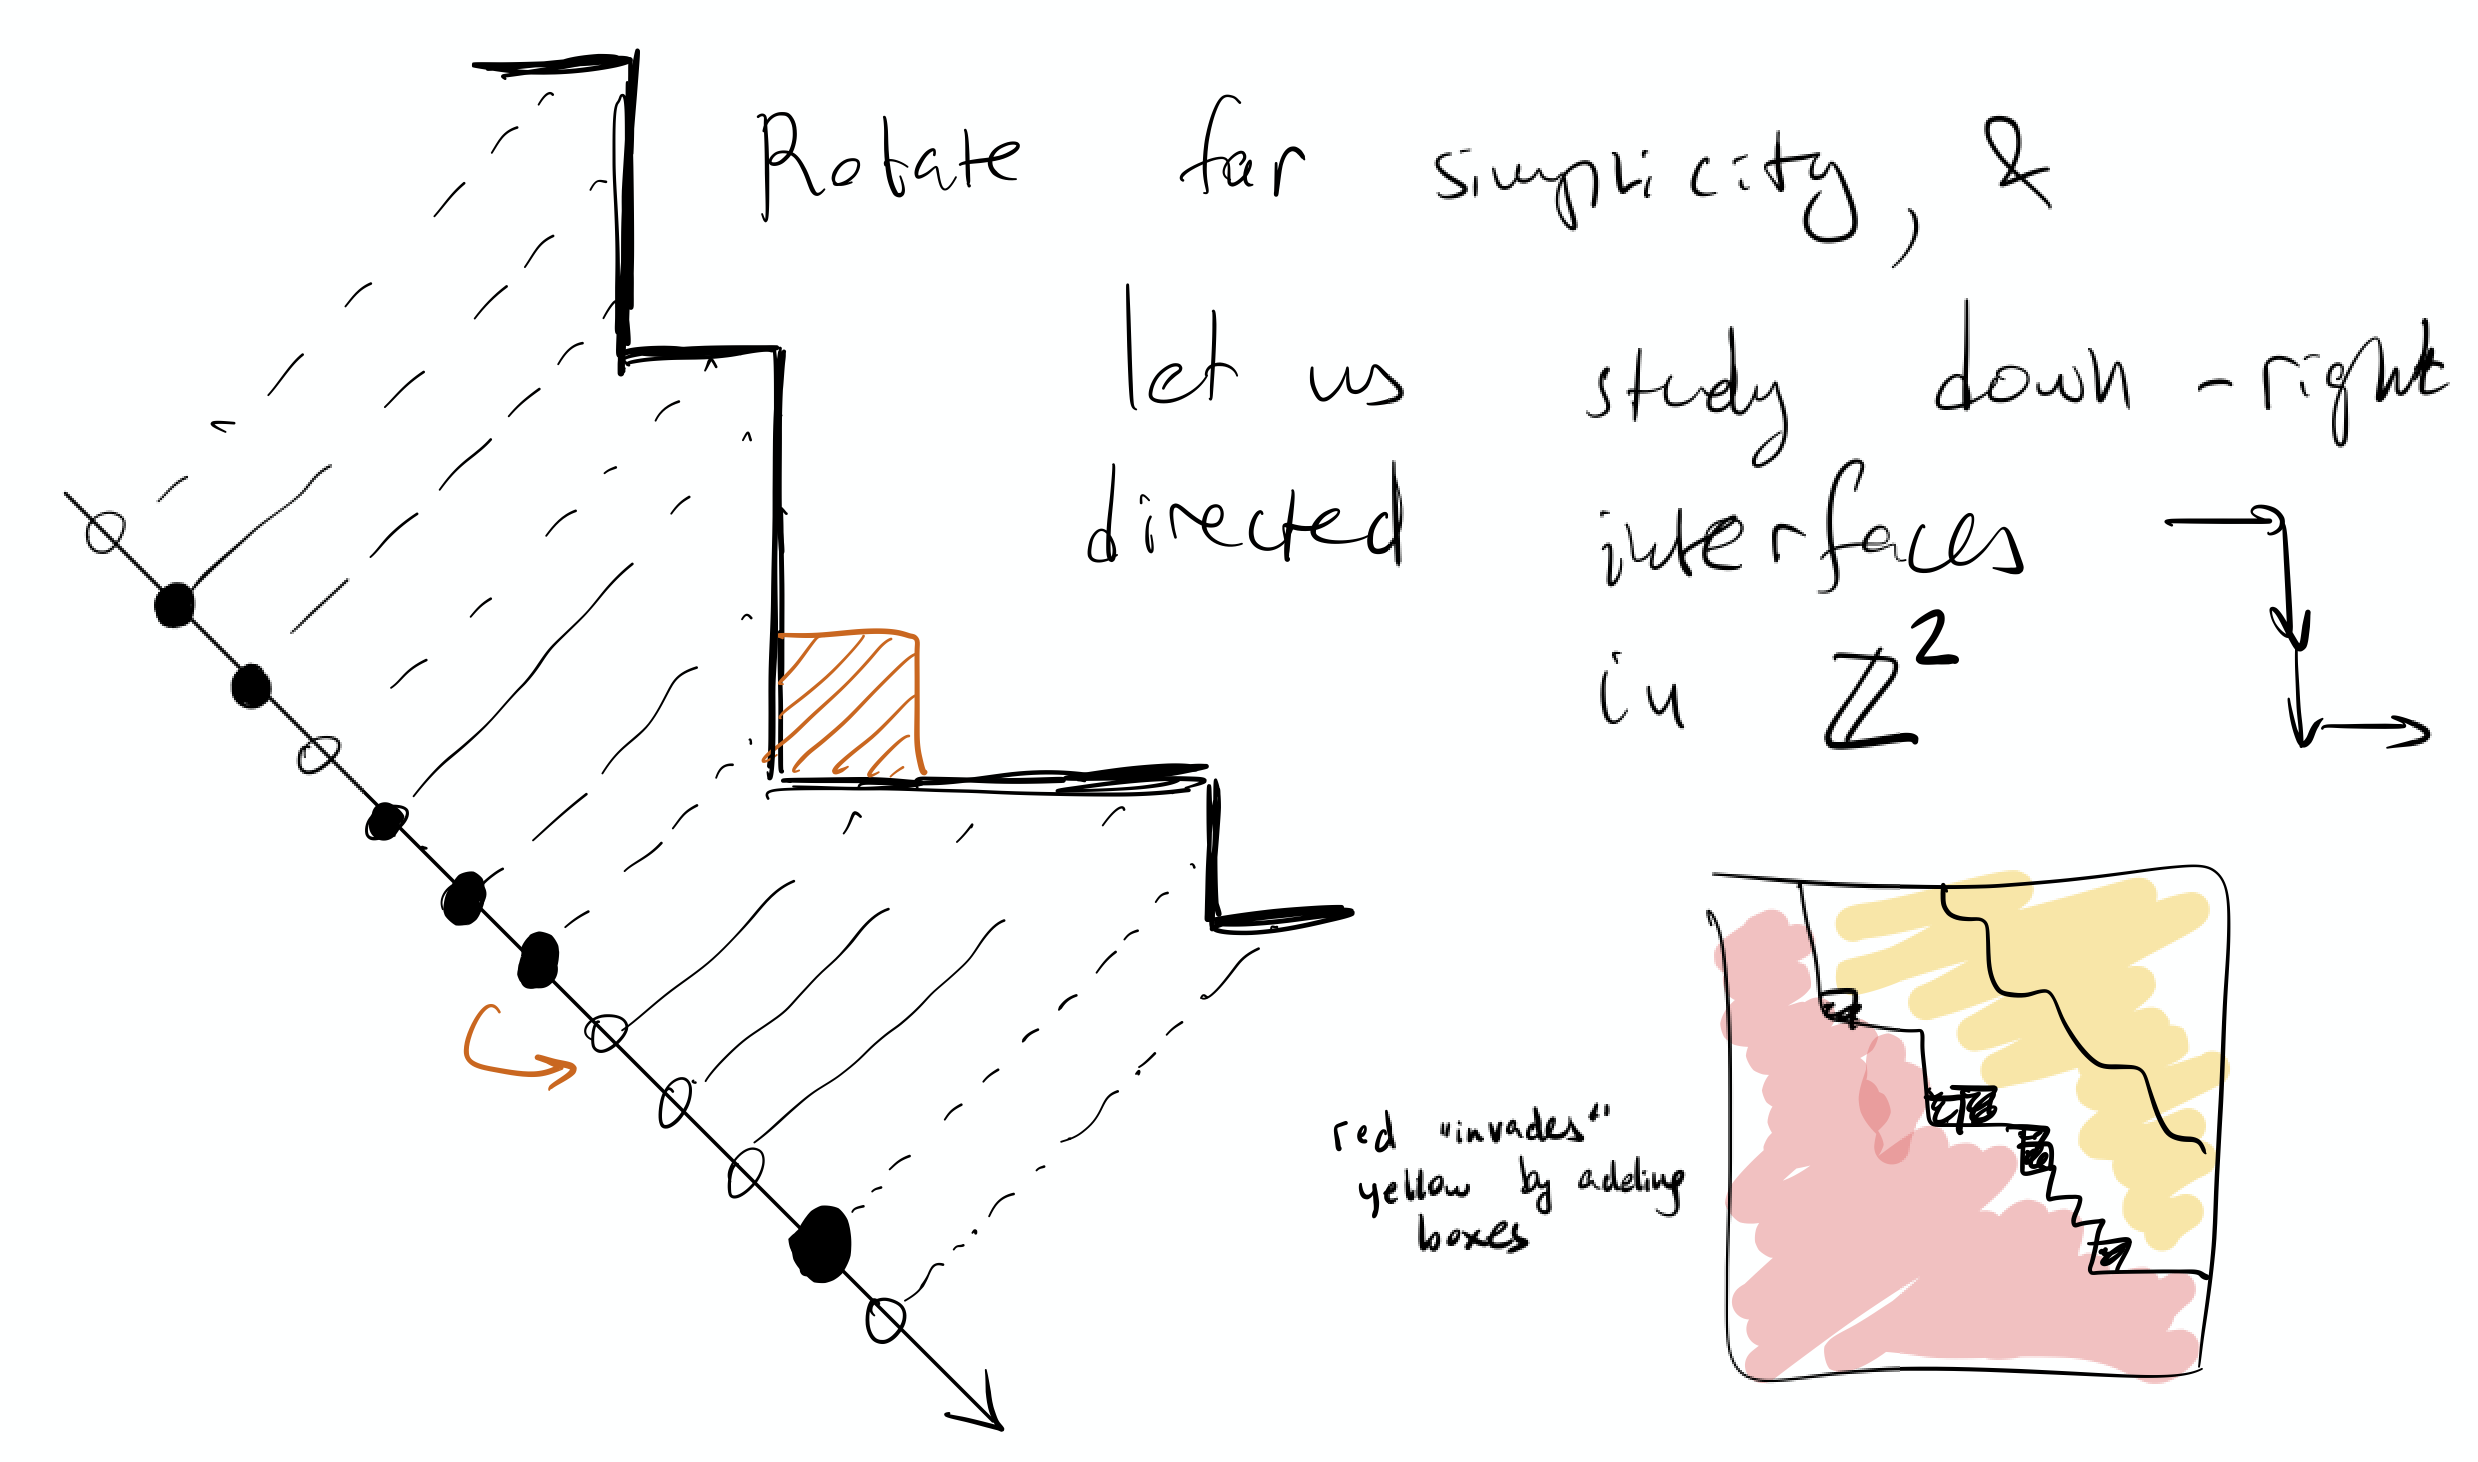 Rotate for simplicity, &
let us study down-right
directed interfaces
in ℤ²
red "invades"
yellow by adding
boxes